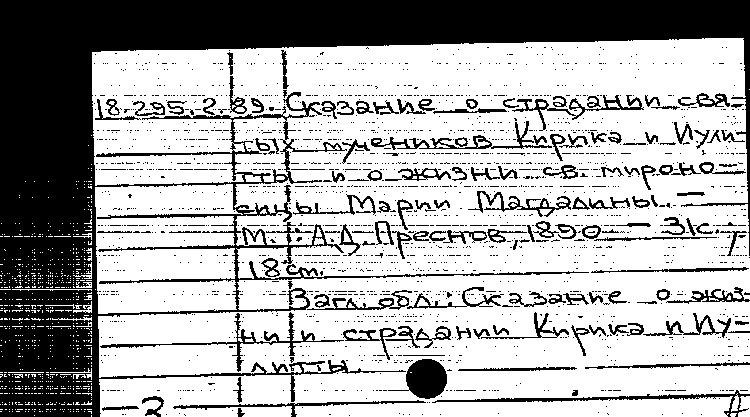 18.295.2.89. Сказание о страдании свя-
тых мучеников Кирика и Иули-
тты и о жизни св. мироно-
сицы Марии Магдалины. —
М.: А.Д. Преснов, 1890. — 31с.;
18 см.
Загл. обл.: Сказание о жиз-
ни и страдании Кирика и Иу-
литты.
3